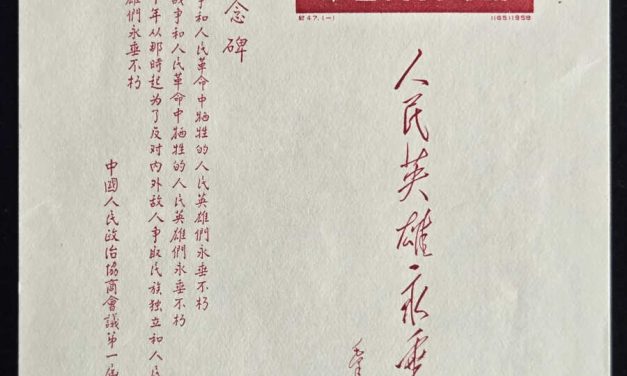 紀47.(一)
(165)1958
人民英雄永垂
念碑
争和人民革命中牺牲的人民英雄們永垂不朽
战争和人民革命中牺牲的人民英雄們永垂不朽
年从那時起为了反对内外敌人争取民族独立和人民
雄們永垂不朽
中國人民政治協商會議第一届